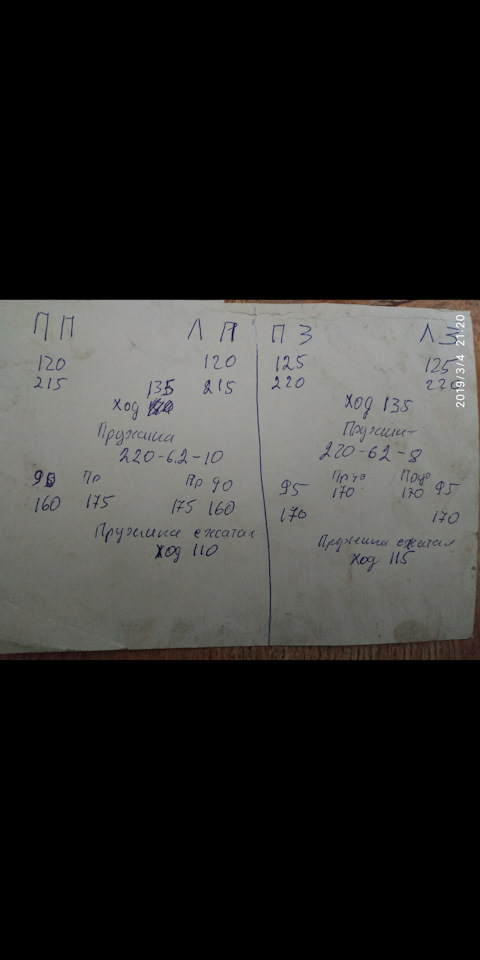 ПП ЛП
120 120
215 135 215
Ход
Пружина
220-62-10
90 Пр Пр 90
160 175 175 160
Пружина сжатая
Ход 110
ПЗ ЛЗ
125 125
220 220
Ход 135
Пружин-
220-62-8
95 Пруж Пруж 95
170 170
170 170
Пружина сжатая
Ход 115
2019/3/4 21:20